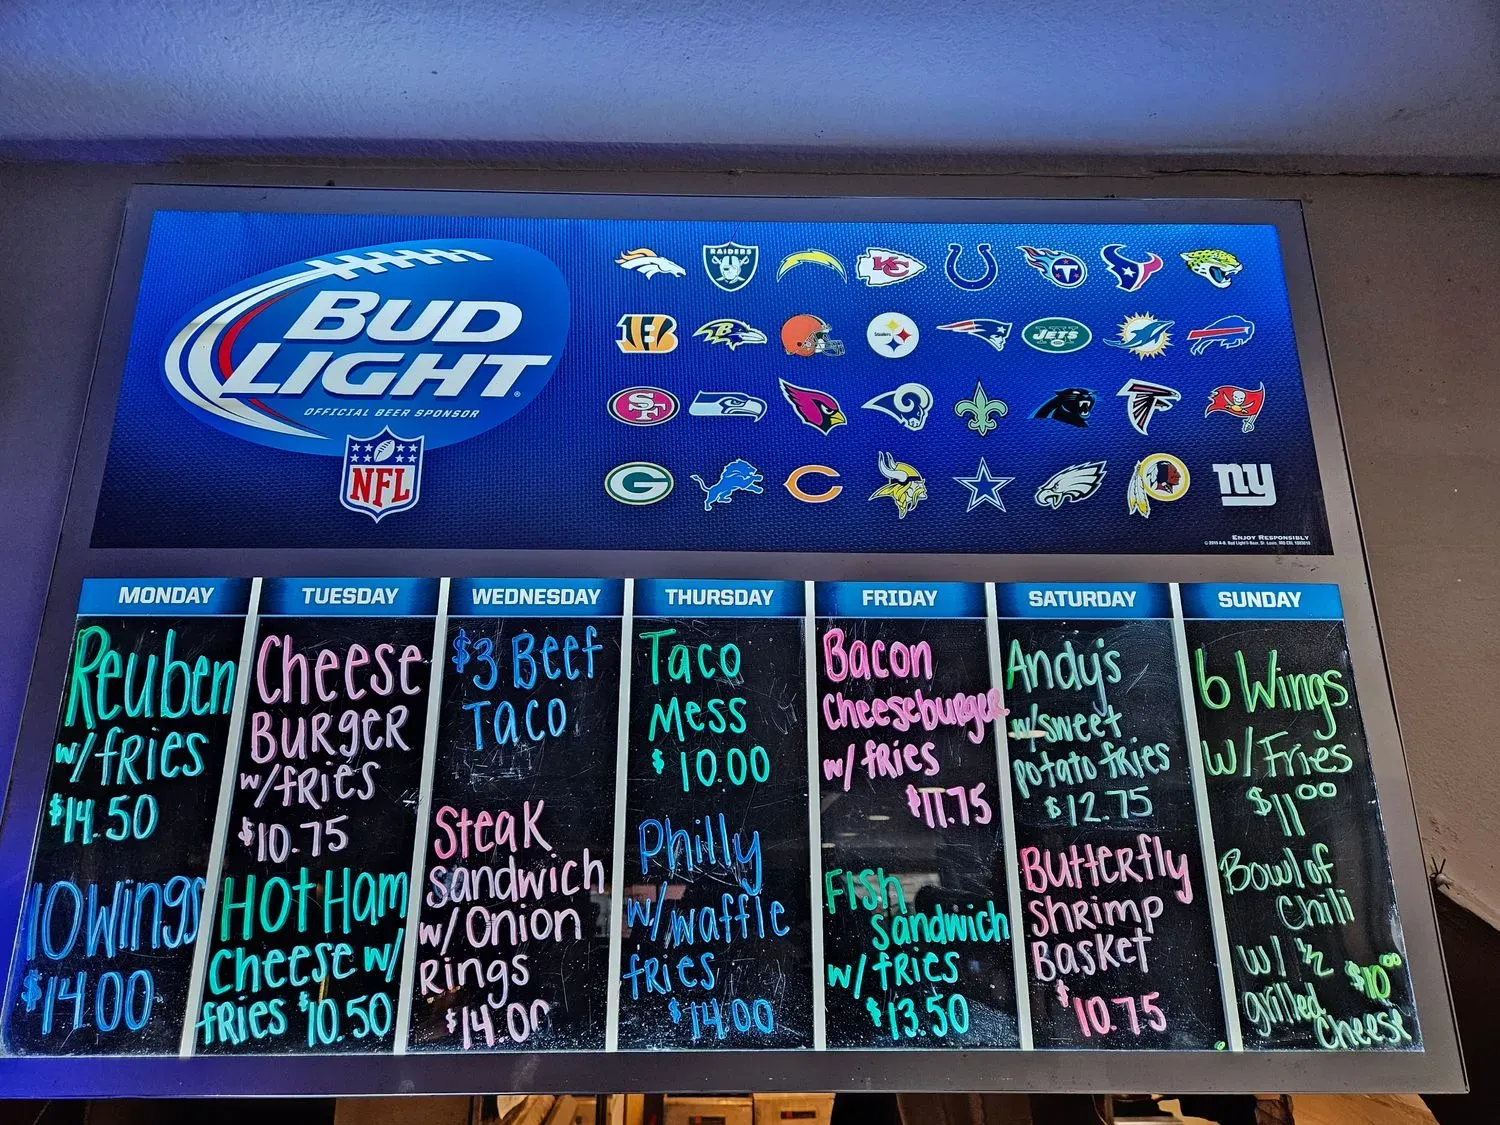 BUD
LIGHT
OFFICIAL BEER SPONSOR
NFL
RAIDERS
KC
T
B
Steelers
JETS
SF
G
C
ny
ENJOY RESPONSIBLY
MONDAY
Reuben
w/ fries
$14.50
10 Wings
$14.00
TUESDAY
Cheese
Burger
w/fries
$10.75
Hot Ham
Cheese w/
fries $10.50
WEDNESDAY
$3 Beef
Taco
Steak
Sandwich
w/ Onion
Rings
$14.00
THURSDAY
Taco
Mess
$10.00
Philly
w/ waffle
fries
$14.00
FRIDAY
Bacon
Cheeseburger
w/ fries
$11.75
Fish
Sandwich
w/ fries
$13.50
SATURDAY
Andy's
w/ sweet
potato fries
$12.75
Butterfly
Shrimp
Basket
$10.75
SUNDAY
6 Wings
w/ Fries
$11⁰⁰
Bowl of
Chili
w/ ½ $10⁰⁰
grilled
cheese